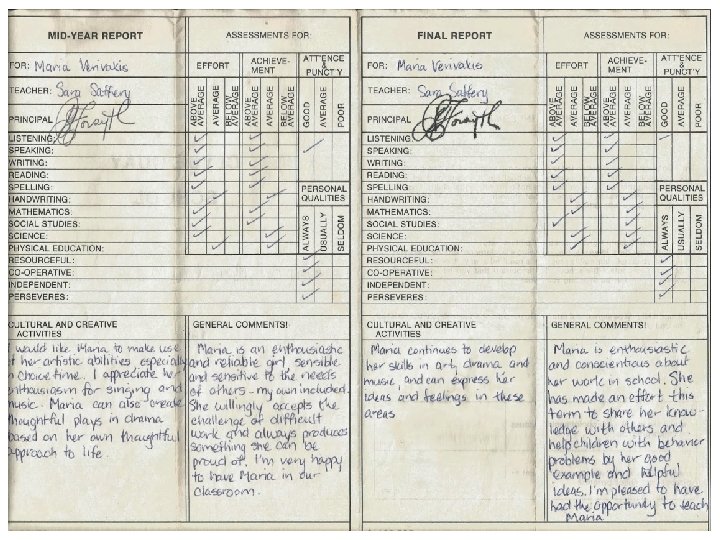 MID-YEAR REPORT
ASSESSMENTS FOR:
FOR: Maria Verivakis
EFFORT
ACHIEVE-
MENT
ATT'ENCE
&
PUNCT'Y
TEACHER: Sara Saffery
PRINCIPAL
ABOVE AVERAGE
AVERAGE
BELOW AVERAGE
ABOVE AVERAGE
AVERAGE
BELOW AVERAGE
GOOD
AVERAGE
POOR
LISTENING:
SPEAKING:
WRITING:
READING:
SPELLING:
HANDWRITING:
MATHEMATICS:
SOCIAL STUDIES:
SCIENCE:
PHYSICAL EDUCATION:
RESOURCEFUL:
CO-OPERATIVE:
INDEPENDENT:
PERSEVERES:
PERSONAL
QUALITIES
ALWAYS
USUALLY
SELDOM
CULTURAL AND CREATIVE
ACTIVITIES
I would like Maria to make use
of her artistic abilities especially
in choice time. I appreciate her
enthusiasm for singing and
music. Maria can also create
thoughtful plays in drama
based on her own thoughtful
approach to life.
GENERAL COMMENTS:
Maria is an enthousiastic
and reliable girl sensible
and sensitive to the needs
of others - my own included.
She willingly accepts the
challenge of difficult
work and always produces
something she can be
proud of. I'm very happy
to have Maria in our
classroom.
FINAL REPORT
ASSESSMENTS FOR:
FOR: Maria Verivakis
EFFORT
ACHIEVE-
MENT
ATT'ENCE
&
PUNCT'Y
TEACHER: Sara Saffery
PRINCIPAL
ABOVE AVERAGE
AVERAGE
BELOW AVERAGE
ABOVE AVERAGE
AVERAGE
BELOW AVERAGE
GOOD
AVERAGE
POOR
LISTENING:
SPEAKING:
WRITING:
READING:
SPELLING:
HANDWRITING:
MATHEMATICS:
SOCIAL STUDIES:
SCIENCE:
PHYSICAL EDUCATION:
RESOURCEFUL:
CO-OPERATIVE:
INDEPENDENT:
PERSEVERES:
PERSONAL
QUALITIES
ALWAYS
USUALLY
SELDOM
CULTURAL AND CREATIVE
ACTIVITIES
Maria continues to develop
her skills in art, drama and
music, and can express her
ideas and feelings in these
areas
GENERAL COMMENTS:
Maria is enthusiastic
and conscientious about
her work in school. She
has made an effort this
term to share her know-
ledge with others and
help children with behavior
problems by her good
example and helpful
ideas. I'm pleased to have
had the opportunity to teach
Maria